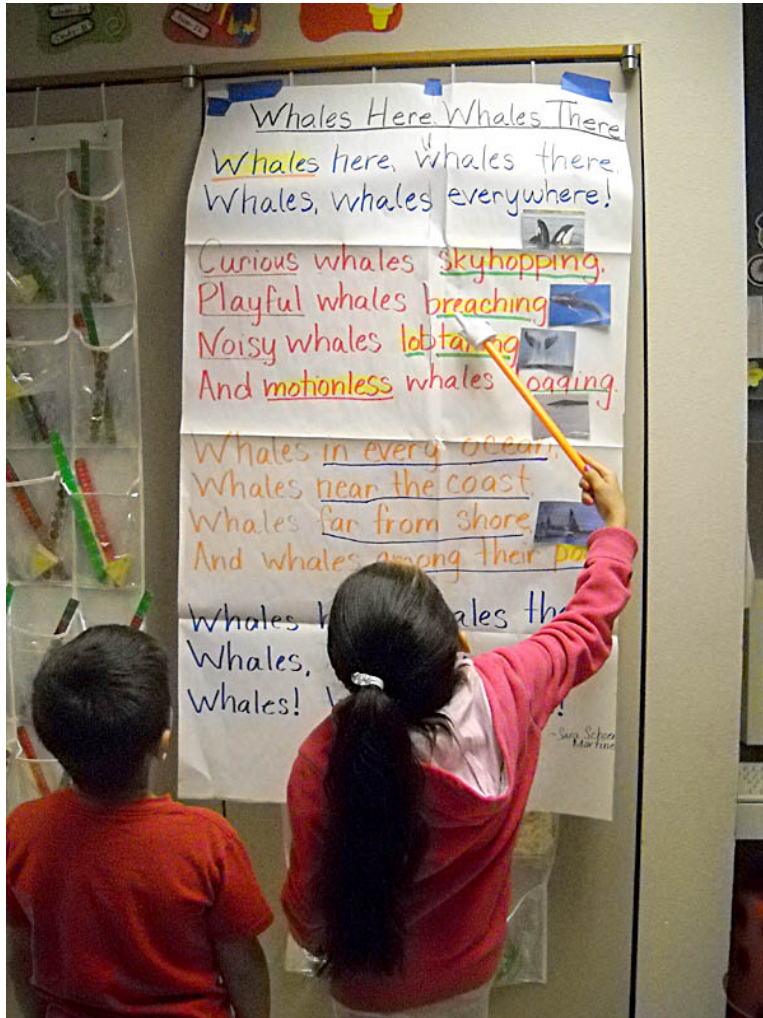 Whales Here Whales There
Whales here, whales there,
Whales, whales everywhere!
Curious whales skyhopping,
Playful whales breaching
Noisy whales
And motionless whales
Whales in every ocean,
Whales near the coast,
Whales far from shore,
And whales among their
Whales
Whales,
Whales!